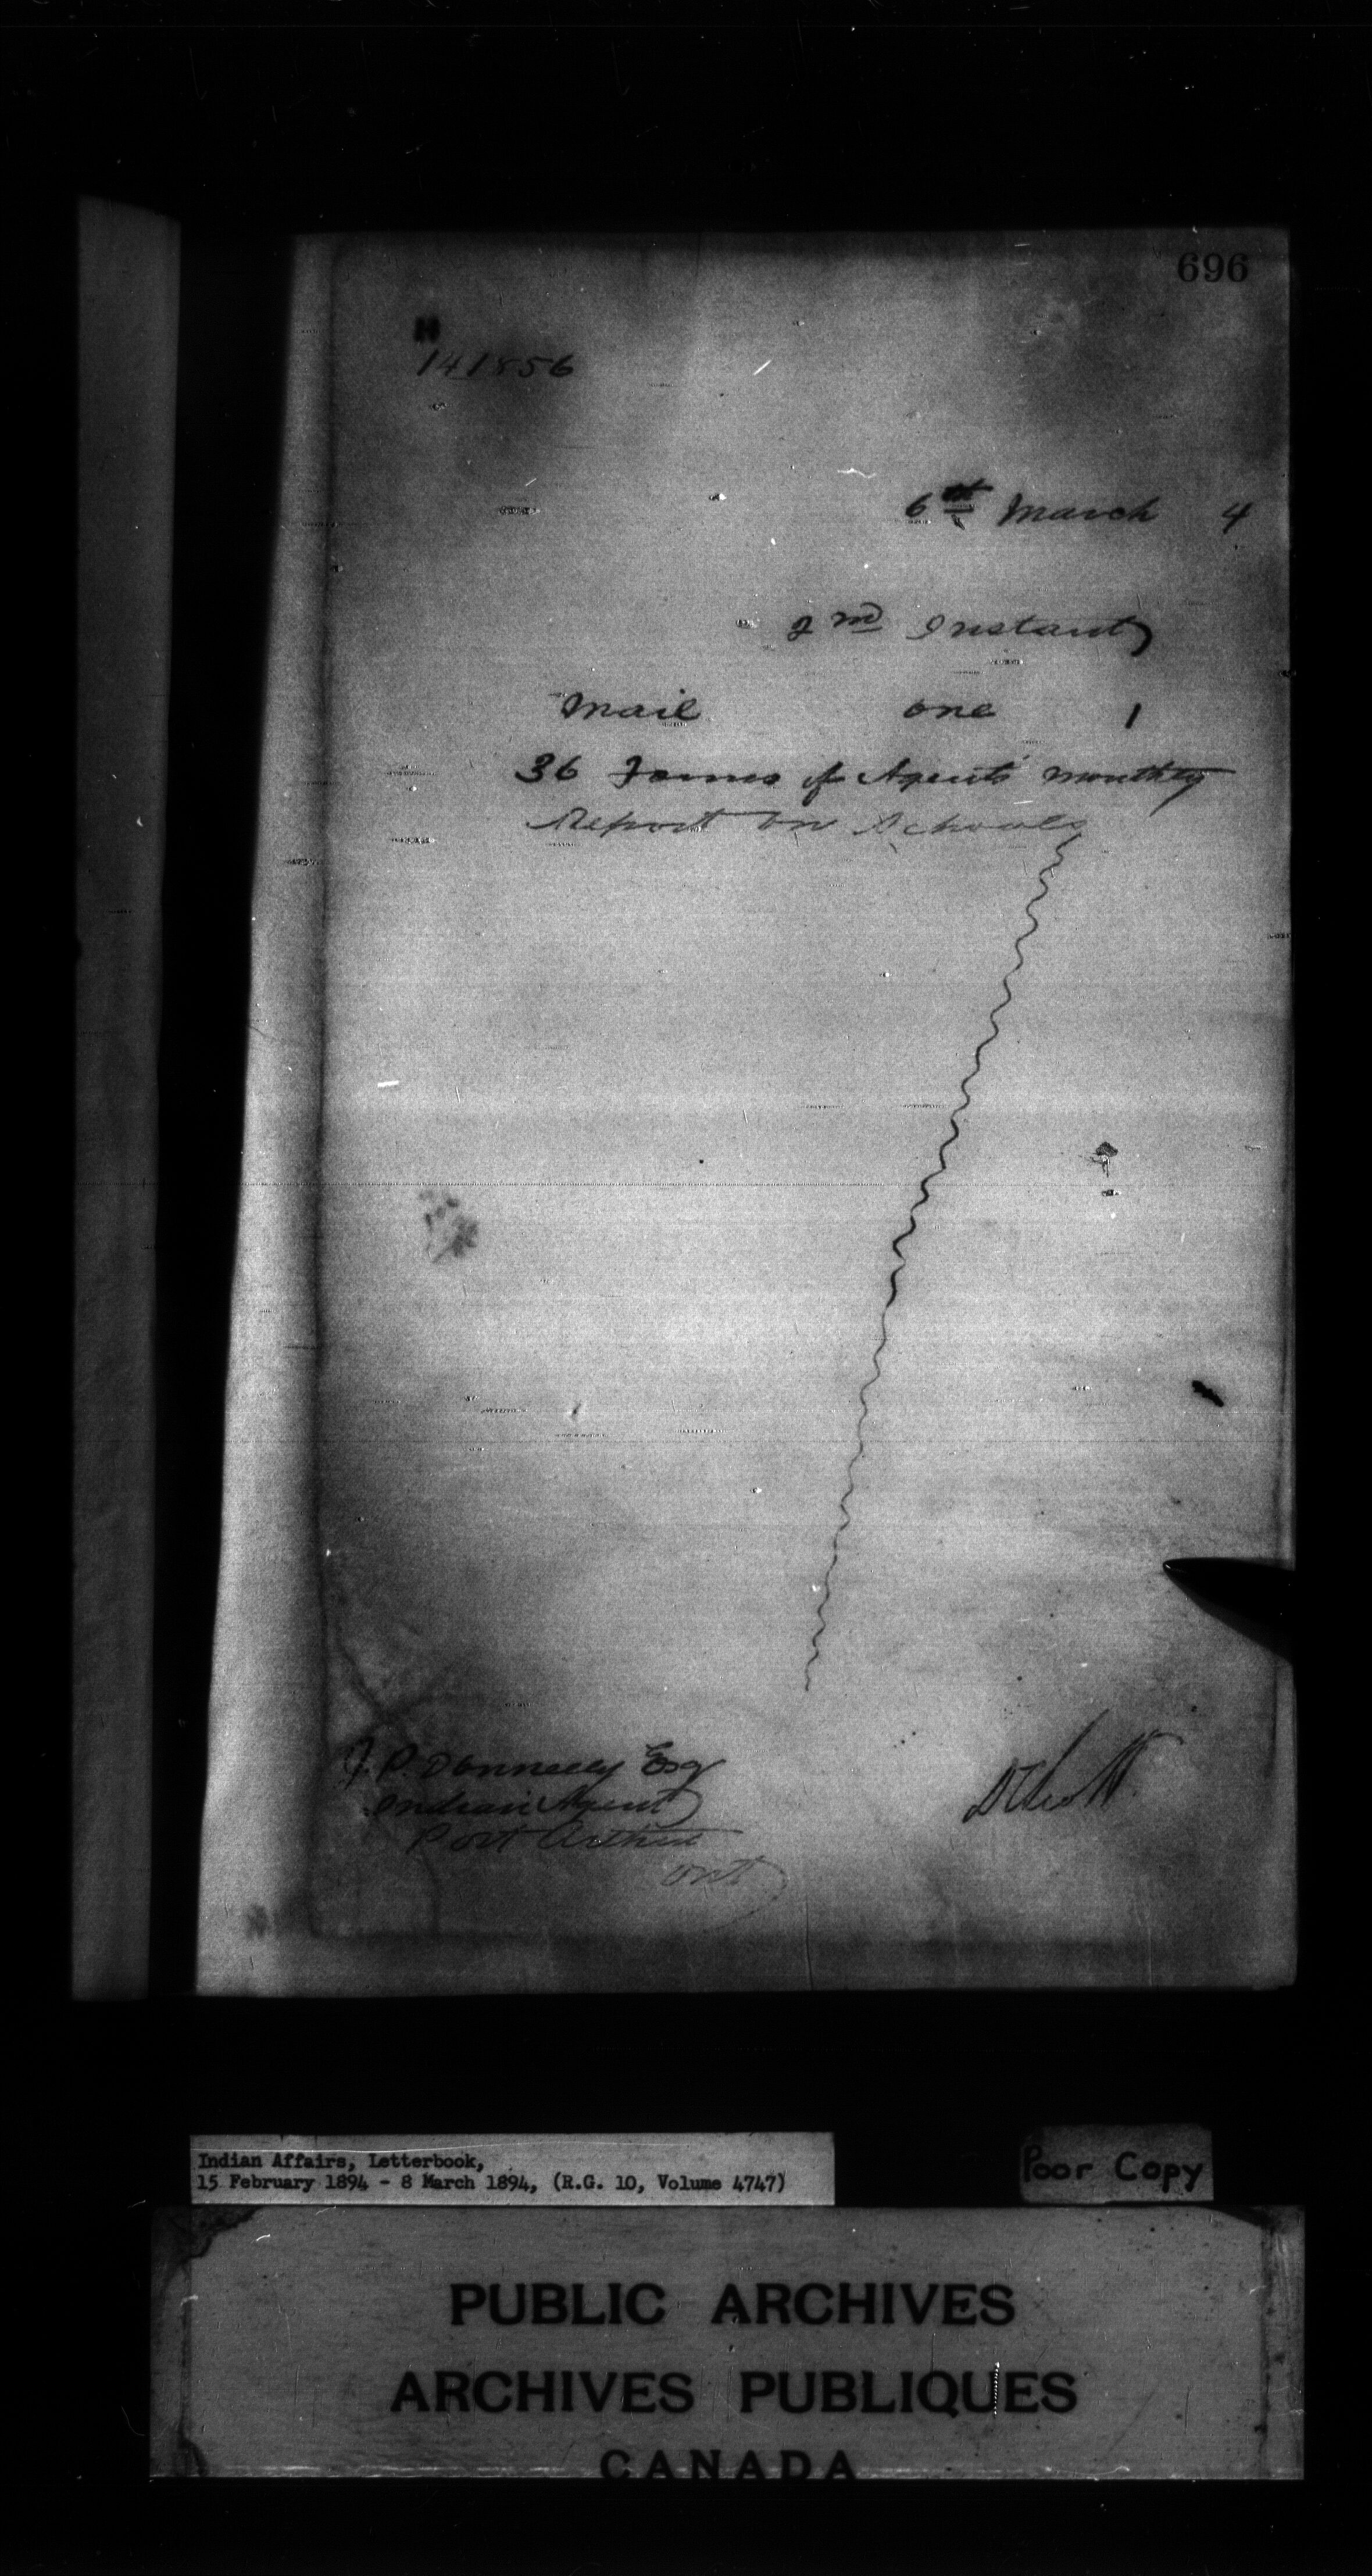 696
H
141856
6th March 4
2nd Instant,
Mail one 1
36 Forms of Agents' Monthly
Report on Schools
J. P. Donnelly Esq
Indian Agent
Port Arthur
Ont
Indian Affairs, Letterbook,
15 February 1894 - 8 March 1894, (R.G. 10, Volume 4747)
Poor Copy
PUBLIC ARCHIVES
ARCHIVES PUBLIQUES
CANADA